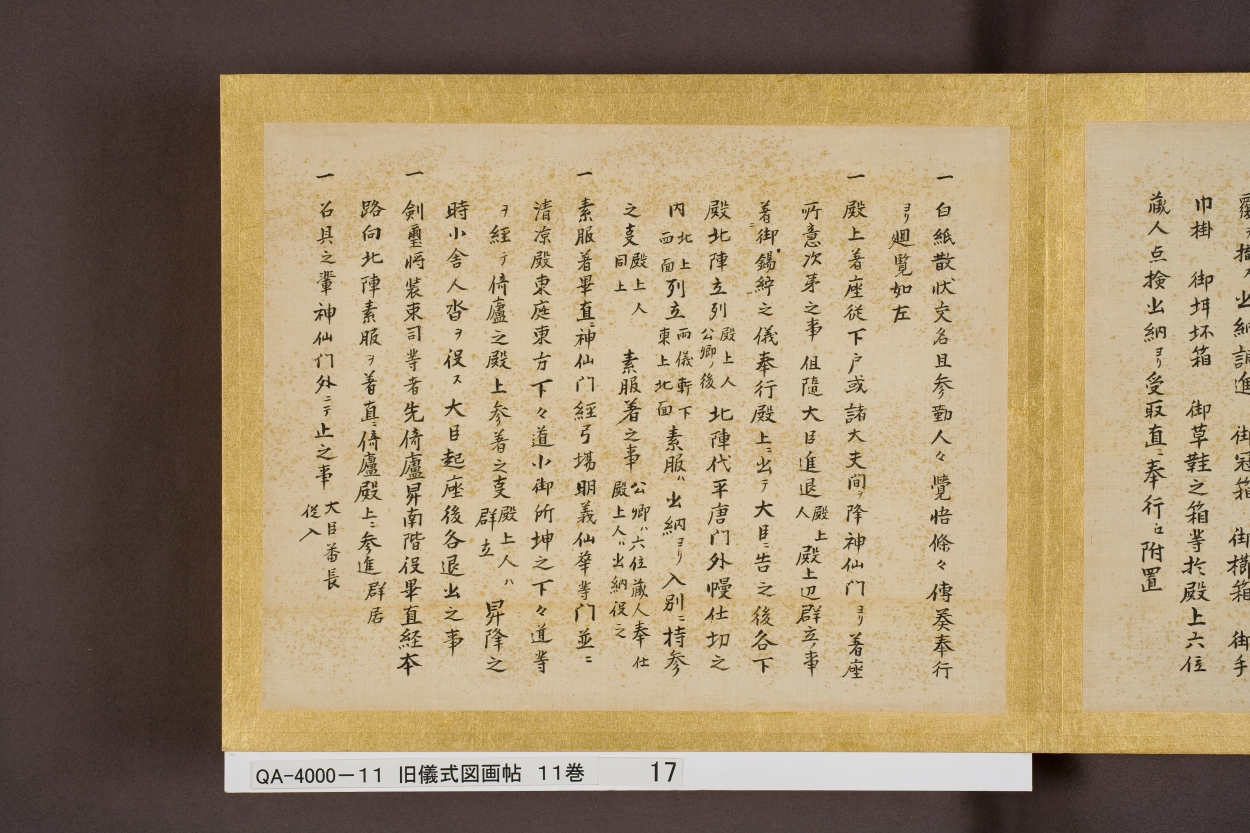 掛
御
巾掛 御坏箱 御草鞋之箱等於殿上六位
蔵人点検出納ヨリ受取直ニ奉行江附置
一 白紙散状交名且参勤人々覚悟條々傳奏奉行
ヨリ廻覧如左
一 殿上著座従下戸或諸大夫間ヲ降神仙門ヨリ著座
所意次第之事 但随大臣進退 殿上人 殿上辺群立ノ事
著御錫紵之儀奉行殿上ニ出テ大臣ニ告之後各下
殿北陣立列 殿上人公卿ノ後 北陣代平唐門外幔仕切之
内 北上西面 列立 雨儀軒下東上北面 素服ハ出納ヨリ入別ニ持参
之事 殿上人同上 素服著之事 公卿ハ六位蔵人奉仕殿上人ハ出納役之
一 素服著畢直ニ神仙門経弓場明義仙華等門並ニ
清凉殿東庭東方下々道小御所坤之下々道等
ヲ経テ倚廬之殿上参著之事 殿上人ハ群立 昇降之
時小舎人沓ヲ役ス大臣起座後各退出之事
一 剣璽将装束司等者先倚廬昇南階役畢直経本
路向北陣素服ヲ著直ニ倚廬殿上ニ参進 群居
一 召具之輩神仙门外ニテ止之事 大臣番長従入
QA-4000-11 旧儀式図画帖 11巻 17